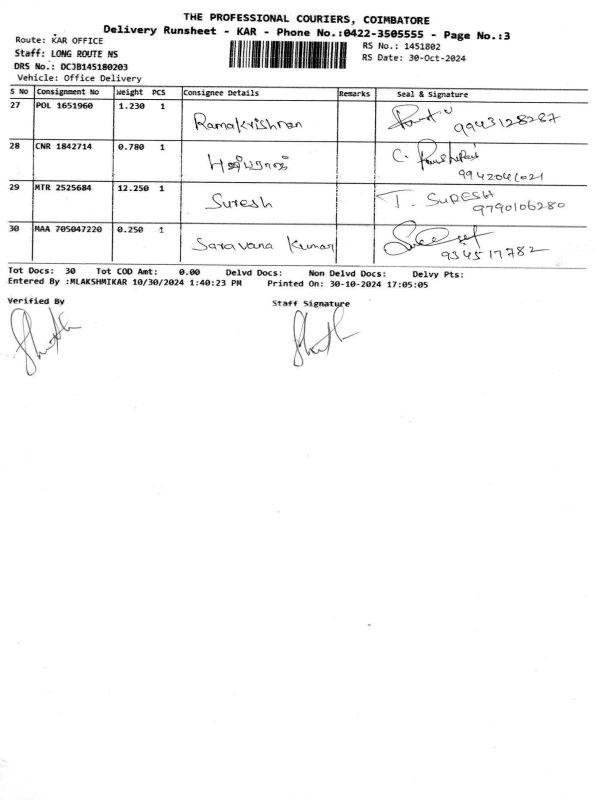 THE PROFESSIONAL COURIERS, COIMBATORE
Delivery Runsheet - KAR - Phone No.:0422-3505555 - Page No.:3
Route: KAR OFFICE
RS No.: 1451802
Staff: LONG ROUTE NS
RS Date: 30-Oct-2024
DRS No.: DCJB145180203
Vehicle: Office Delivery
S No Consignment No Weight PCS Consignee Details Remarks Seal & Signature
27 POL 1651960 1.230 1 Ramakrishnan 9943128287
28 CNR 1842714 0.780 1
29 MTR 2525684 12.250 1 Suresh T. SURESH 9790106280
30 MAA 705047220 0.250 1 Saravana Kumar 934517782
Tot Docs: 30 Tot COD Amt: 0.00 Delvd Docs: Non Delvd Docs: Delvy Pts:
Entered By :MLAKSHMIKAR 10/30/2024 1:40:23 PM Printed On: 30-10-2024 17:05:05
Verified By Staff Signature